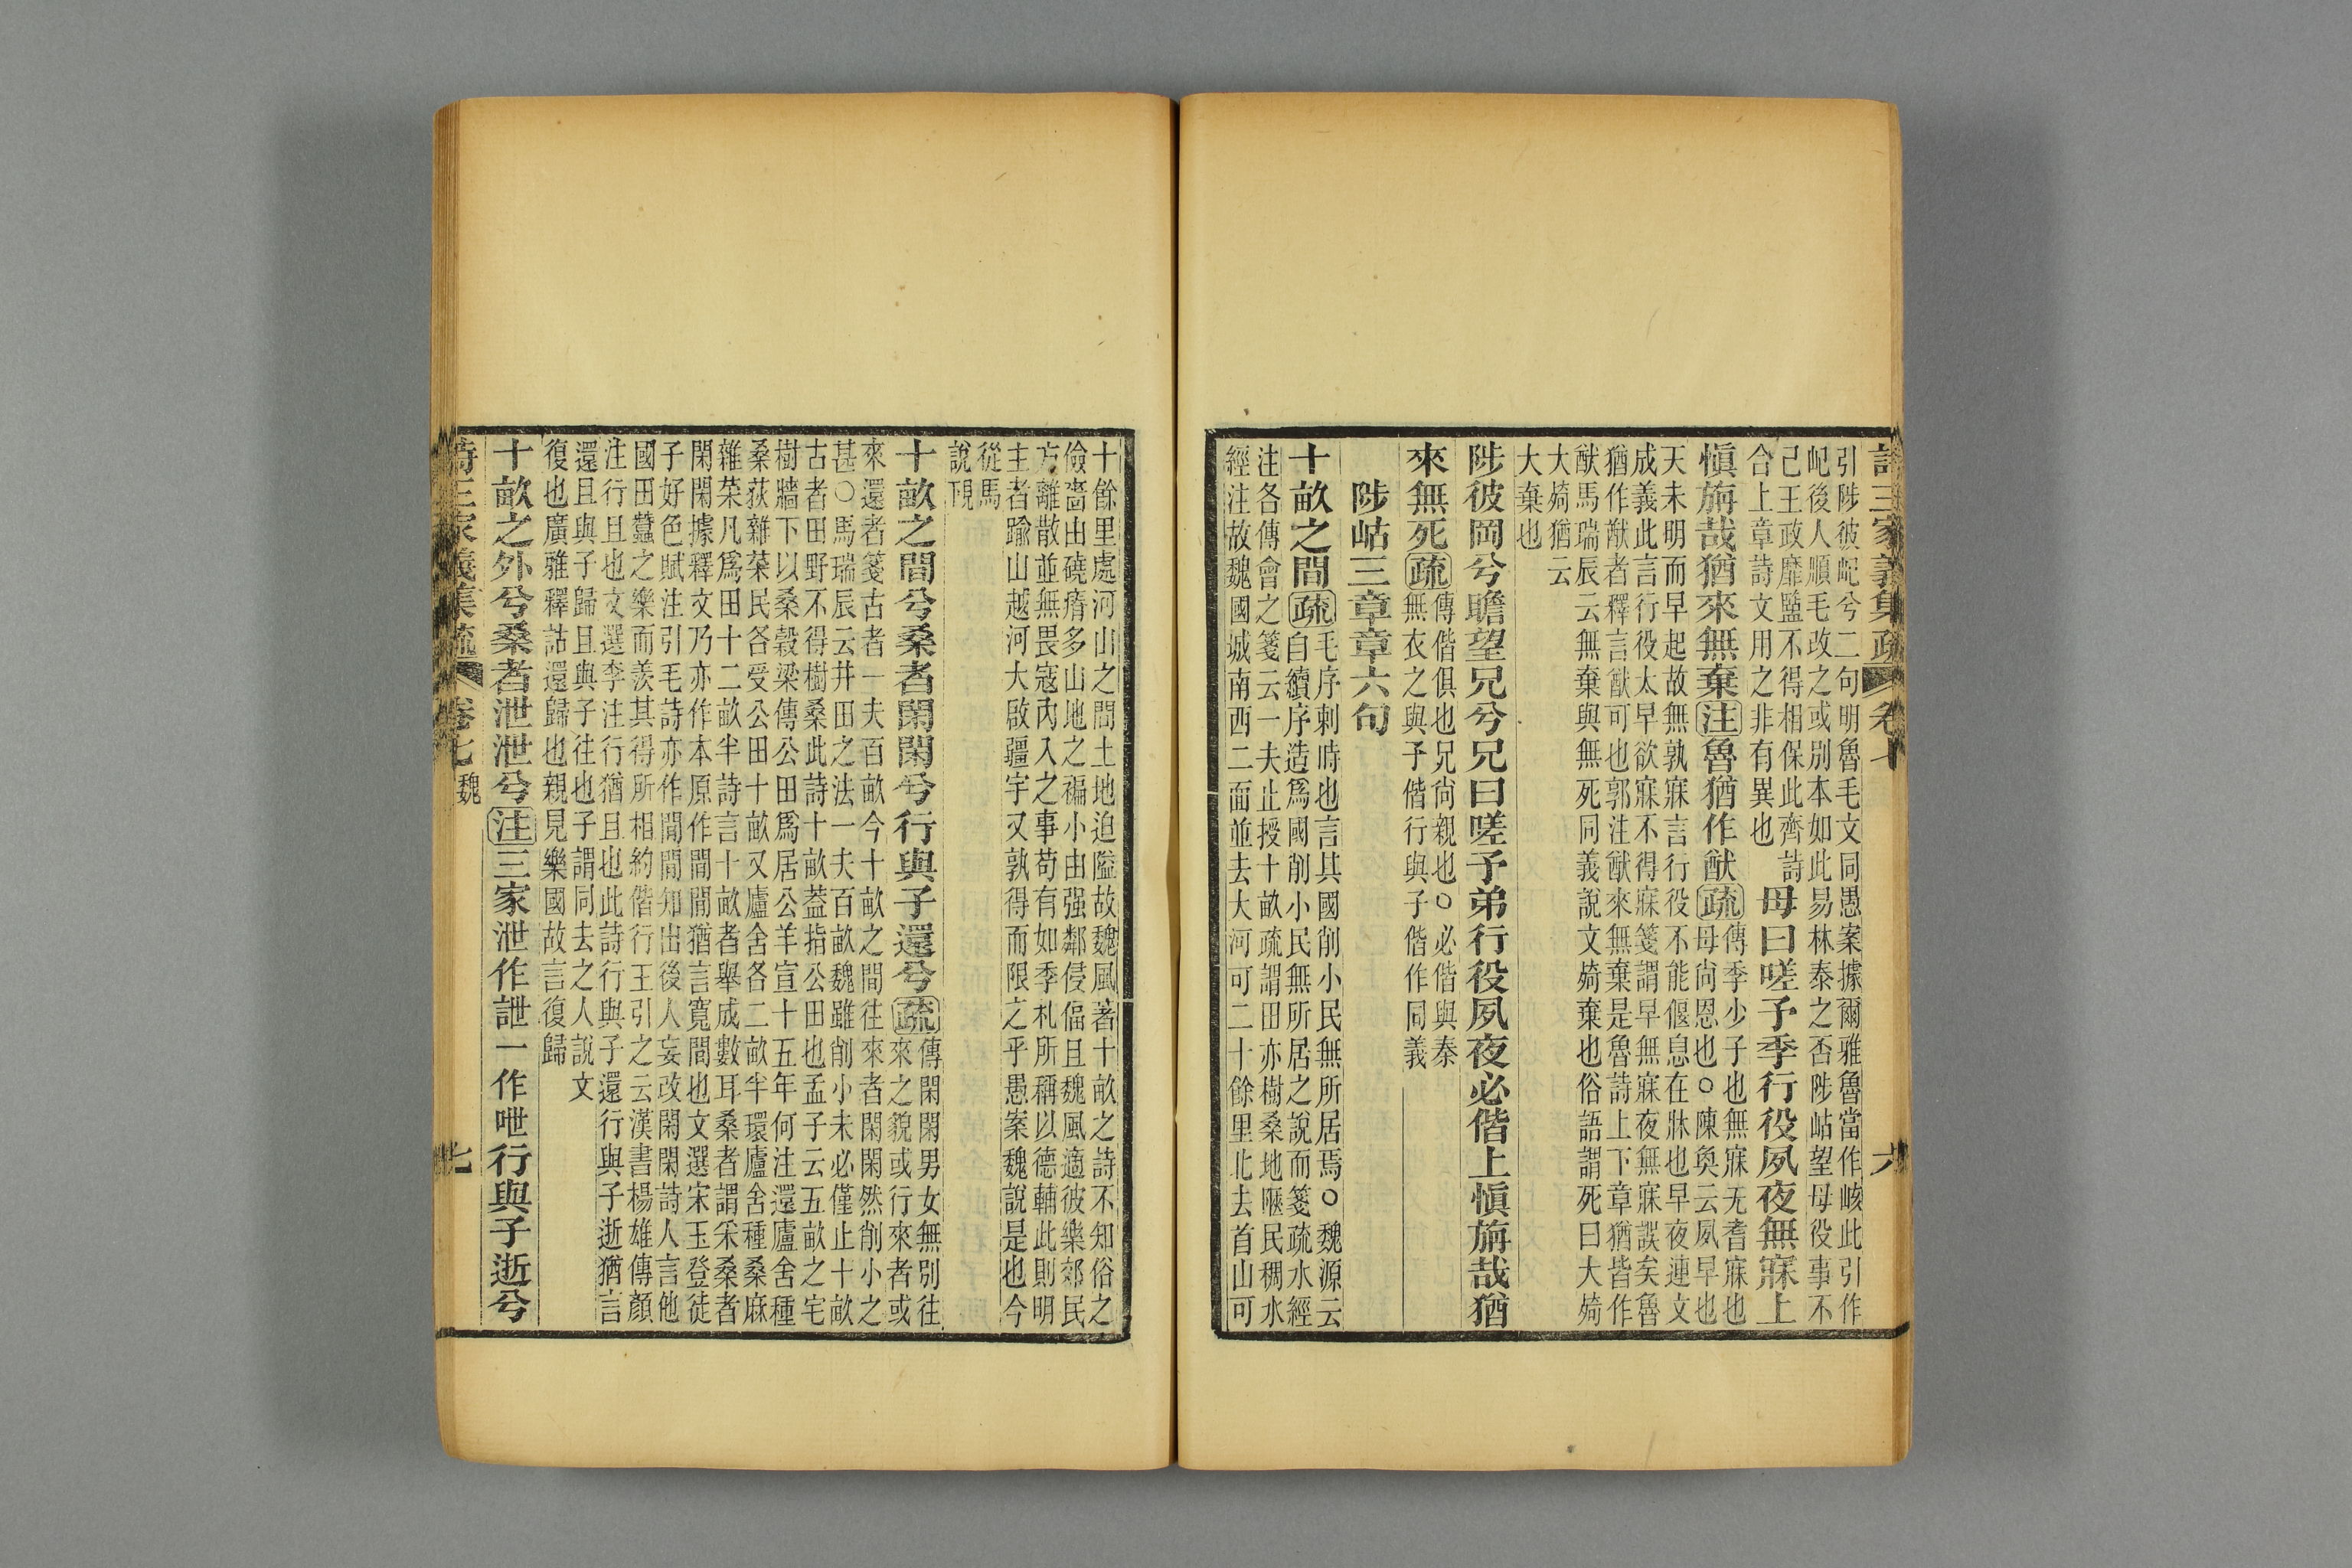 詩三家義集疏 卷七 六
引陟彼屺兮二句明魯毛文同愚案據爾雅魯當作峐此引作
屺後人順毛改之或別本如此易林泰之否陟岵望母役事不
己王政靡盬不得相保此齊詩
合上章詩文用之非有異也
母曰嗟予季行役夙夜無寐上
愼旃哉猶來無棄注魯猶作猷疏
傳季少子也無寐无耆寐也
母尙恩也○陳奐云夙早也
天未明而早起故無孰寐言行役不能偃息在牀也早夜連文
成義此言行役太早欲寐不得寐箋謂早無寐夜無寐誤矣魯
猶作猷者釋言猷可也郭注猷來無棄是魯詩上下章猶皆作
猷馬瑞辰云無棄與無死同義說文㱦棄也俗語謂死曰大㱦
大㱦猶云
大棄也
陟彼岡兮瞻望兄兮兄曰嗟予弟行役夙夜必偕上愼旃哉猶
來無死疏
傳偕俱也兄尙親也○必偕與秦
無衣之與子偕行與子偕作同義
陟岵三章章六句
十畝之間疏
毛序刺時也言其國削小民無所居焉○魏源云
自續序造爲國削小民無所居之說而箋疏水經
注各傳會之箋云一夫止授十畝疏謂田亦樹桑地陿民稠水
經注故魏國城南西二面並去大河可二十餘里北去首山可
十餘里處河山之間土地迫隘故魏風著十畝之詩不知俗之
儉嗇由磽瘠多山地之褊小由强鄰侵偪且魏風適彼樂郊民
方離散並無畏寇內入之事苟有如季札所稱以德輔此則明
主者踰山越河大啟疆宇又孰得而限之乎愚案魏說是也今
從馬
說覗
十畝之間兮桑者閑閑兮行與子還兮疏
傳閑閑男女無別往
來之貌或行來者或
來還者箋古者一夫百畝今十畝之間往來者閑閑然削小之
甚○馬瑞辰云井田之法一夫百畝魏雖削小未必僅止十畝
古者田野不得樹桑此詩十畝蓋指公田也孟子云五畝之宅
樹牆下以桑穀梁傳公田爲居公羊宣十五年何注還廬舍種
桑荻雜菜民各受公田十畝又廬舍各二畝半環廬舍種桑麻
雜菜凡爲田十二畝半詩言十畝者舉成數耳桑者謂采桑者
閑閑據釋文乃亦作本原作閒閒猶言寬閒也文選宋玉登徒
子好色賦注引毛詩亦作閒閒知出後人妄改閑閑詩人言他
國田蠶之樂而羨其得所相約偕行王引之云漢書楊雄傳顏
注行且也文選李注行猶且也此詩行與子還行與子逝猶言
還且與子歸且與子往也子謂同去之人說文
復也廣雅釋詁還歸也親見樂國故言復歸
十畝之外兮桑者泄泄兮注三家泄作詍一作呭行與子逝兮
詩三家義集疏 卷七 魏 七